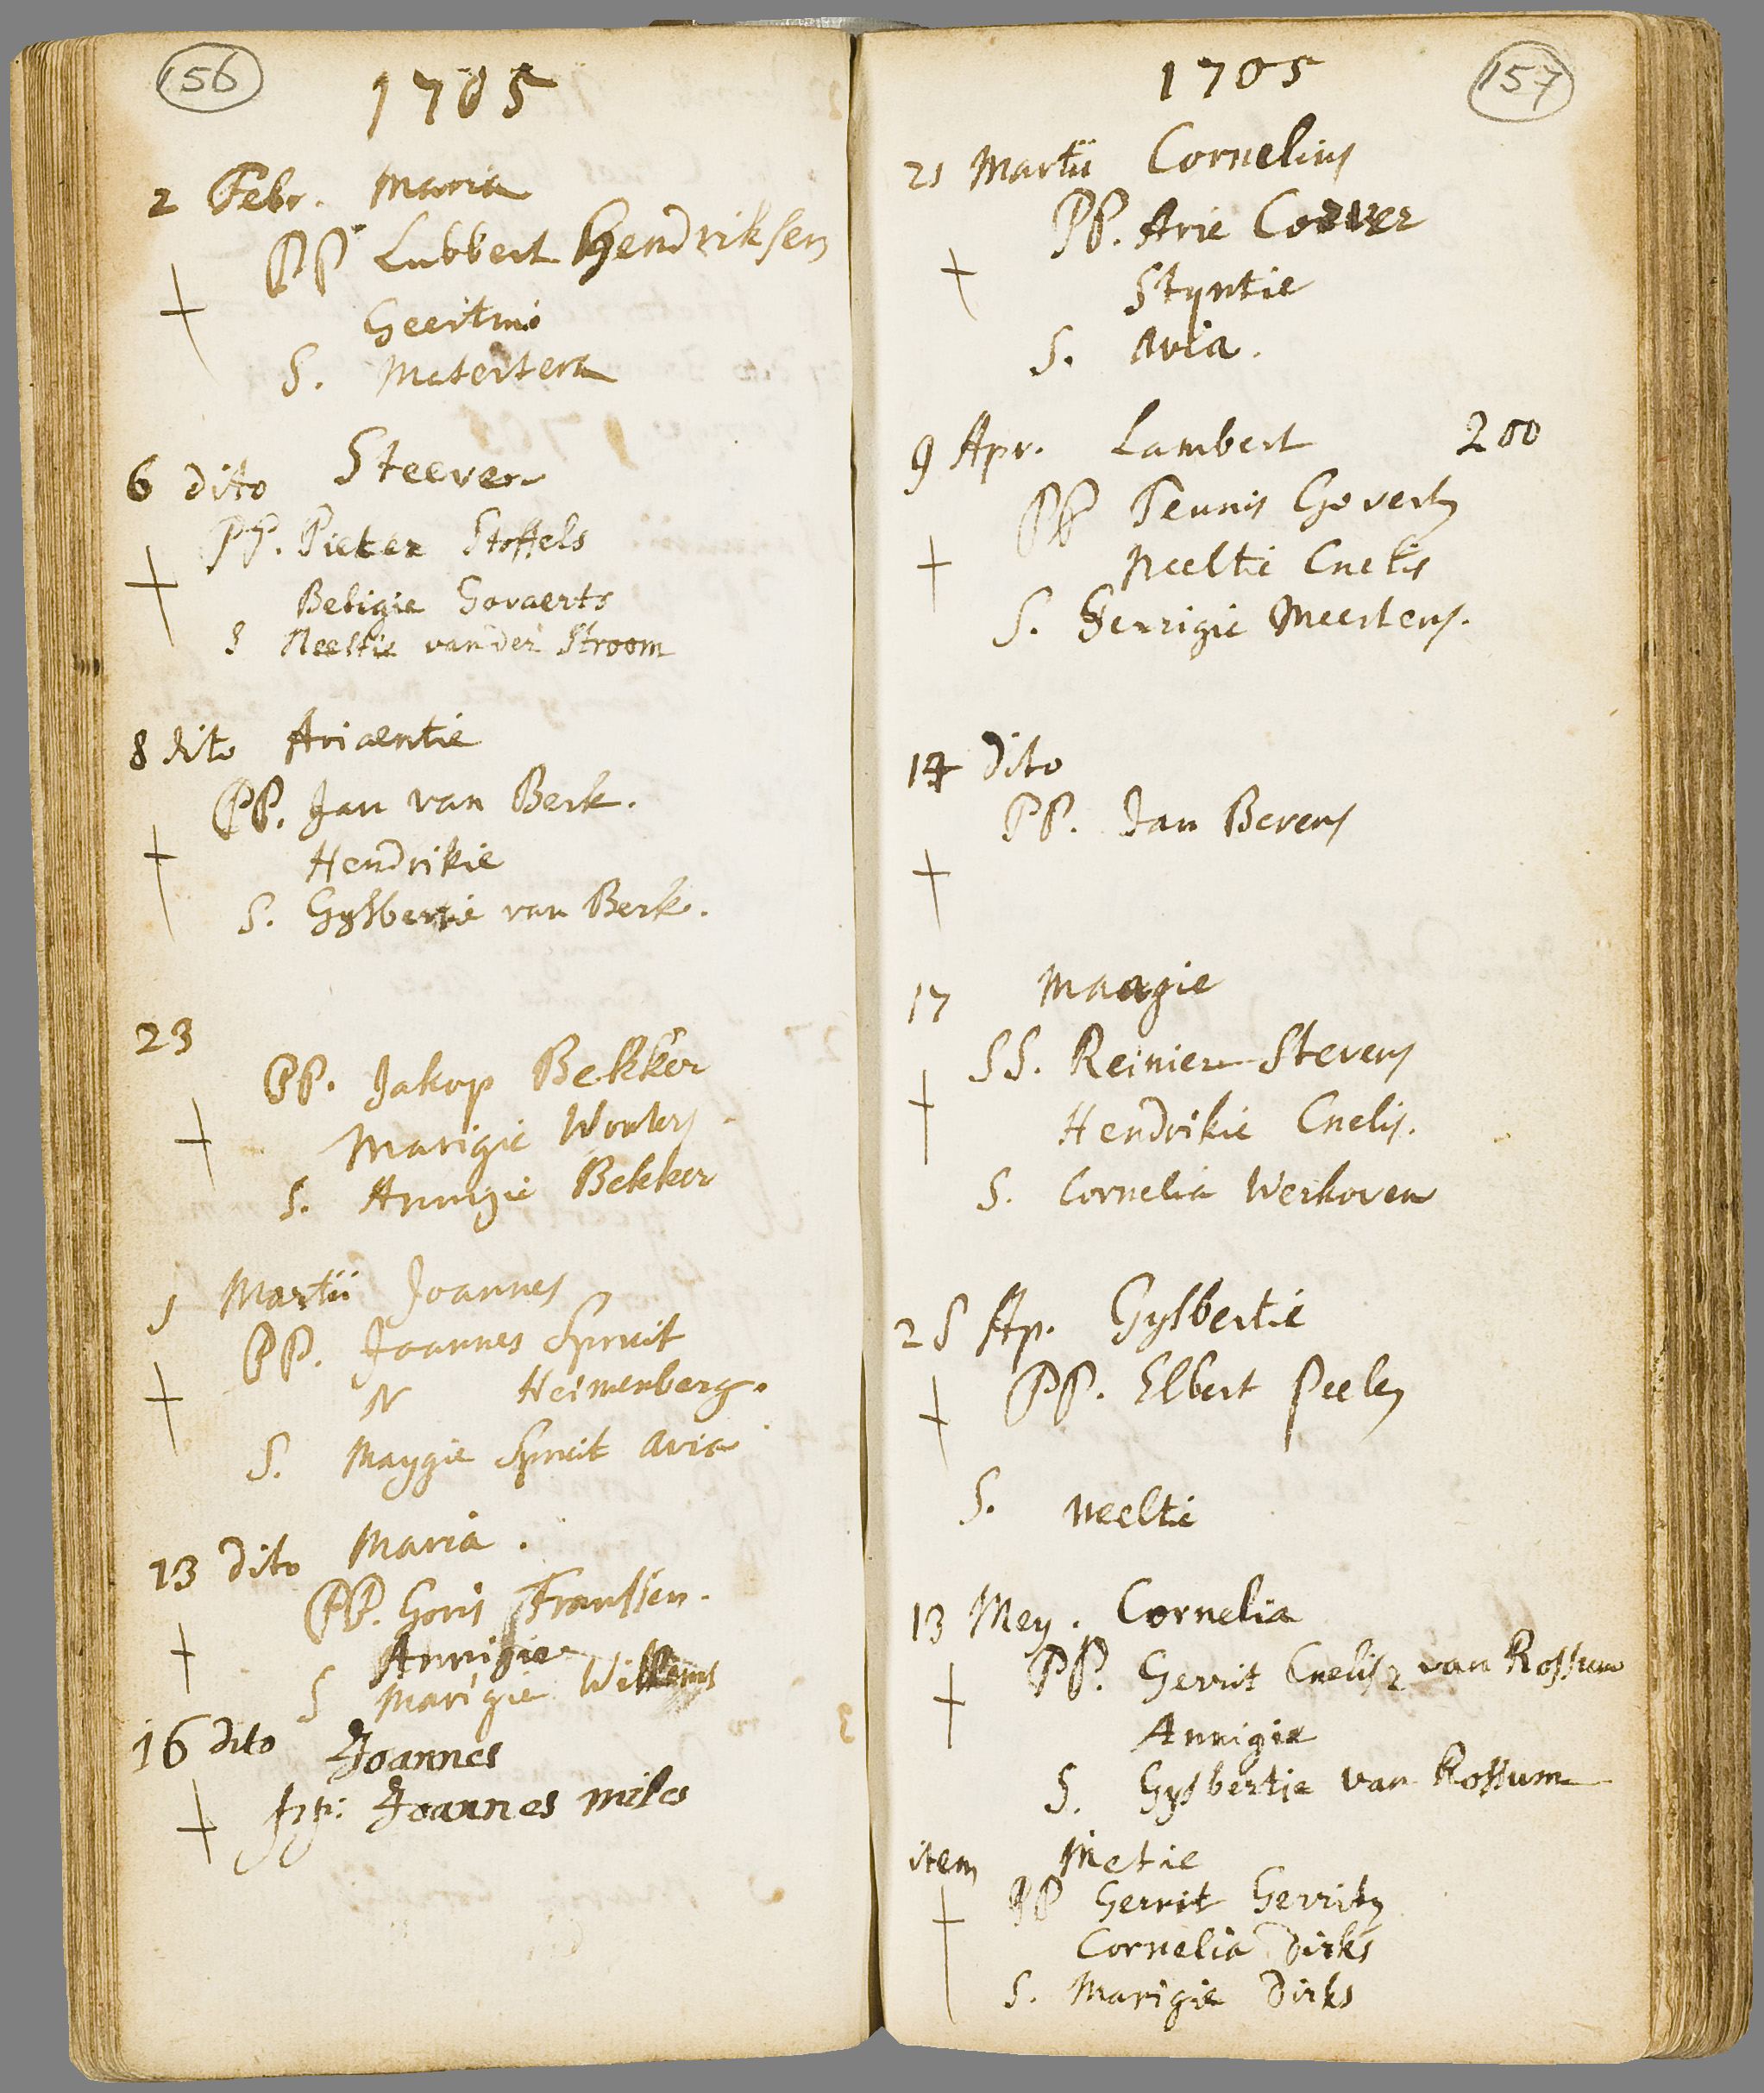 156
1705
2 Febr. Maria
PP Lubbert Hendriksen
Geertrui
S. Matertera
6 dito Steeven
PP. Pieter Stoffels
Beligie Govaerts
S Neeltie van der Stroom
8 dito Ariaentie
PP. Jan van Berk.
Hendrikie
S. Gysbertie van Berk.
23
PP. Jakop Bekker
Marigie Wouters
S. Annigie Bekker
1 Martii Joannes
PP. Joannes Spruit
N Heimenberg.
S. Maygie Spruit avia
13 dito Maria.
PP. Goris Franssen.
Annigie
S Marigie Willems
16 dito Joannes
pp: Joannes miles
157
1705
21 Martii Cornelius
PP. Arie Cosver
Styntie
S. avia.
9 Apr. Lambert 200
PP Teunis Goverts
Neeltie Cnelis
S. Gerrigie Meertens.
14 dito
PP. Jan Berens
17 Maagie
SS. Reinier Stevens
Hendrikie Cnelis.
S. Cornelia Werkoven
25 Ap. Gysbertie
PP. Elbert Peels
S. Neeltie
13 Mey. Cornelia
PP. Gerrit Cnelisz van Rossum
Annigie
S. Gysbertie van Rossum
item Metie
PP Gerrit Gerrits
Cornelia Dirks
S. Marigie Dirks